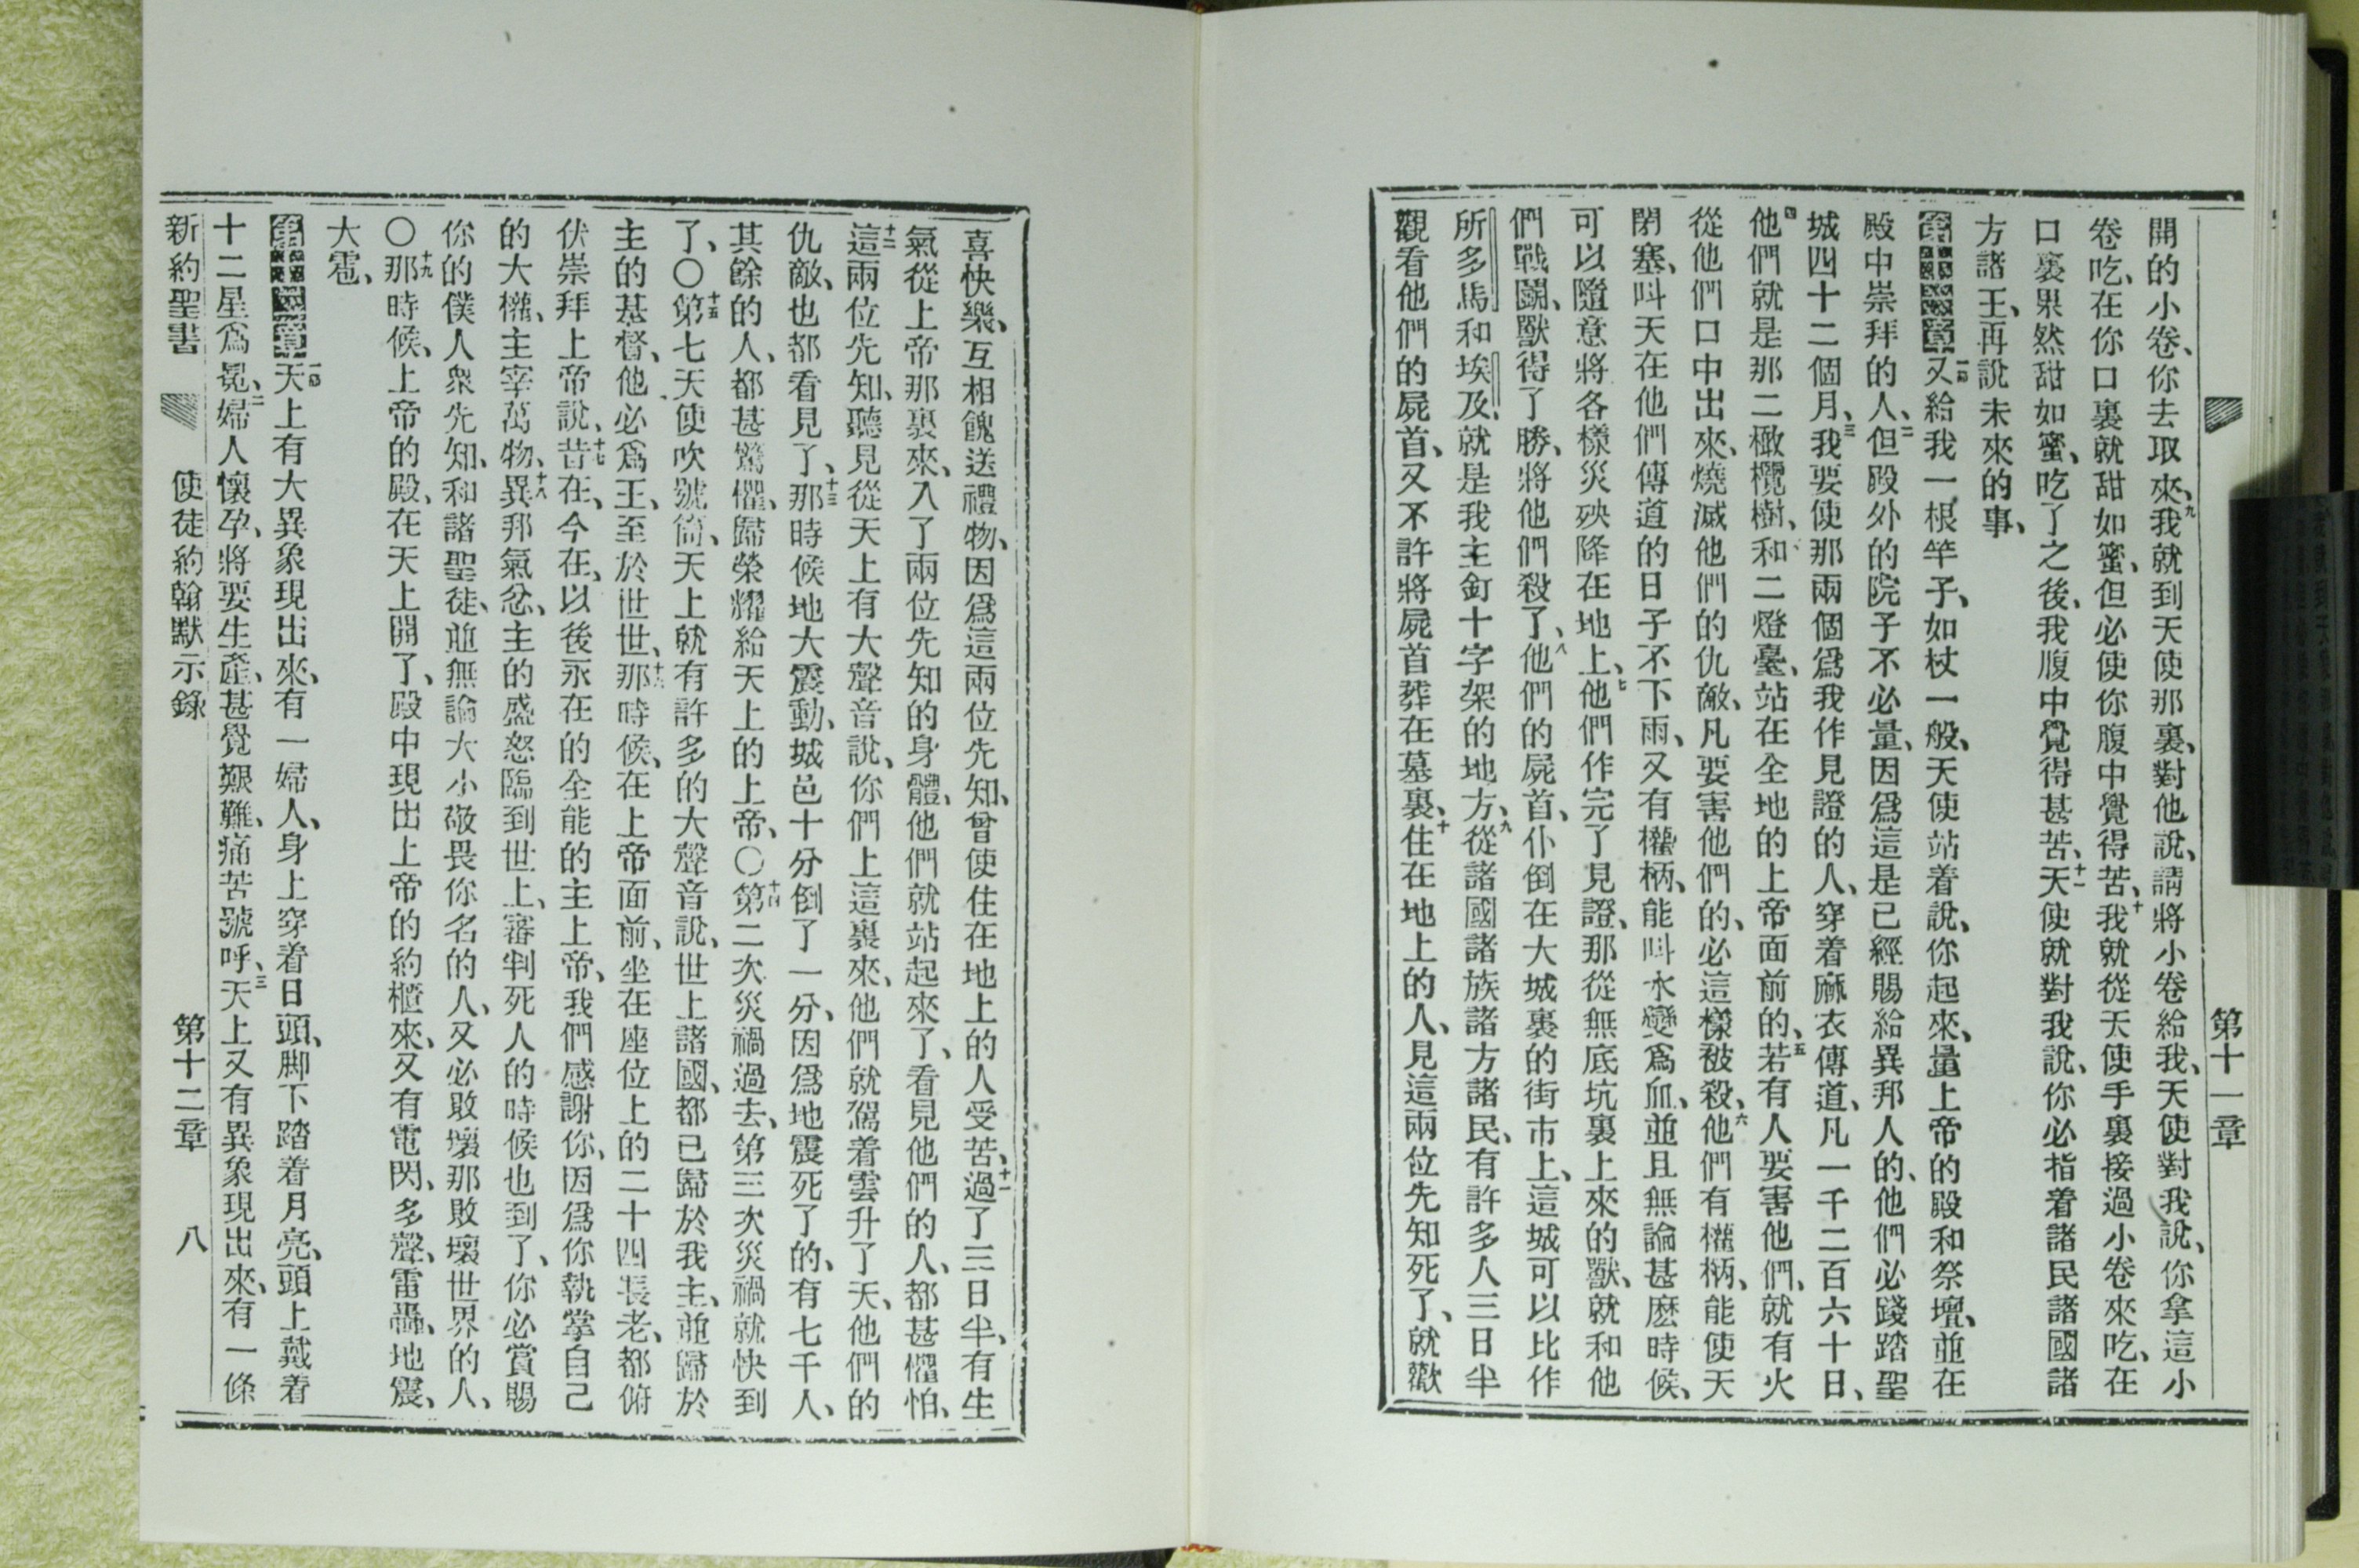 第十一章
開的小卷、你去取來、九我就到天使那裏、對他說、請將小卷給我、天使對我說、你拿這小
卷吃、在你口裏就甜如蜜、但必使你腹中覺得苦、十我就從天使手裏接過小卷來吃、在
口裏果然甜如蜜、吃了之後、我腹中覺得甚苦、十一天使就對我說、你必指着諸民諸國諸
方諸王、再說未來的事、
第十一章一節又給我一根竿子、如杖一般、天使站着說、你起來、量上帝的殿和祭壇、並在
殿中崇拜的人、二但殿外的院子不必量、因爲這是已經賜給異邦人的、他們必踐踏聖
城四十二個月、三我要使那兩個爲我作見證的人、穿着麻衣傳道、凡一千二百六十日、
四他們就是那二橄欖樹、和二燈臺、站在全地的上帝面前的、五若有人要害他們、就有火
從他們口中出來、燒滅他們的仇敵、凡要害他們的、必這樣被殺、六他們有權柄、能使天
閉塞、叫天在他們傳道的日子不下雨、又有權柄、能叫水變爲血、並且無論甚麽時候、
可以隨意將各樣災殃降在地上、七他們作完了見證、那從無底坑裏上來的獸、就和他
們戰鬭、獸得了勝、將他們殺了、八他們的屍首、仆倒在大城裏的街市上、這城可以比作
所多馬和埃及、就是我主釘十字架的地方、九從諸國諸族諸方諸民、有許多人三日半
觀看他們的屍首、又不許將屍首葬在墓裏、十住在地上的人、見這兩位先知死了、就歡
喜快樂、互相餽送禮物、因爲這兩位先知、曾使住在地上的人受苦、十一過了三日半、有生
氣從上帝那裏來、入了兩位先知的身體、他們就站起來了、看見他們的人、都甚懼怕、
十二這兩位先知、聽見從天上有大聲音說、你們上這裏來、他們就駕着雲升了天、他們的
仇敵、也都看見了、十三那時候地大震動、城邑十分倒了一分、因爲地震死了的、有七千人、
其餘的人、都甚驚懼、歸榮耀給天上的上帝、〇十四第二次災禍過去、第三次災禍就快到
了、〇十五第七天使吹號筒、天上就有許多的大聲音說、世上諸國、都已歸於我主、並歸於
主的基督、他必爲王、至於世世、十六那時候、在上帝面前、坐在座位上的二十四長老、都俯
伏崇拜上帝說、十七昔在、今在、以後永在的全能的主上帝、我們感謝你、因爲你執掌自己
的大權、主宰萬物、十八異邦氣忿、主的盛怒臨到世上、審判死人的時候也到了、你必賞賜
你的僕人衆先知、和諸聖徒、並無論大小敬畏你名的人、又必敗壞那敗壞世界的人、
〇十九那時候、上帝的殿、在天上開了、殿中現出上帝的約櫃來、又有電閃、多聲、雷轟、地震、
大雹、
第十二章一節天上有大異象現出來、有一婦人、身上穿着日頭、脚下踏着月亮、頭上戴着
十二星爲冕、二婦人懷孕、將要生產、甚覺艱難、痛苦號呼、三天上又有異象現出來、有一條
新約聖書 使徒約翰默示錄 第十二章 八